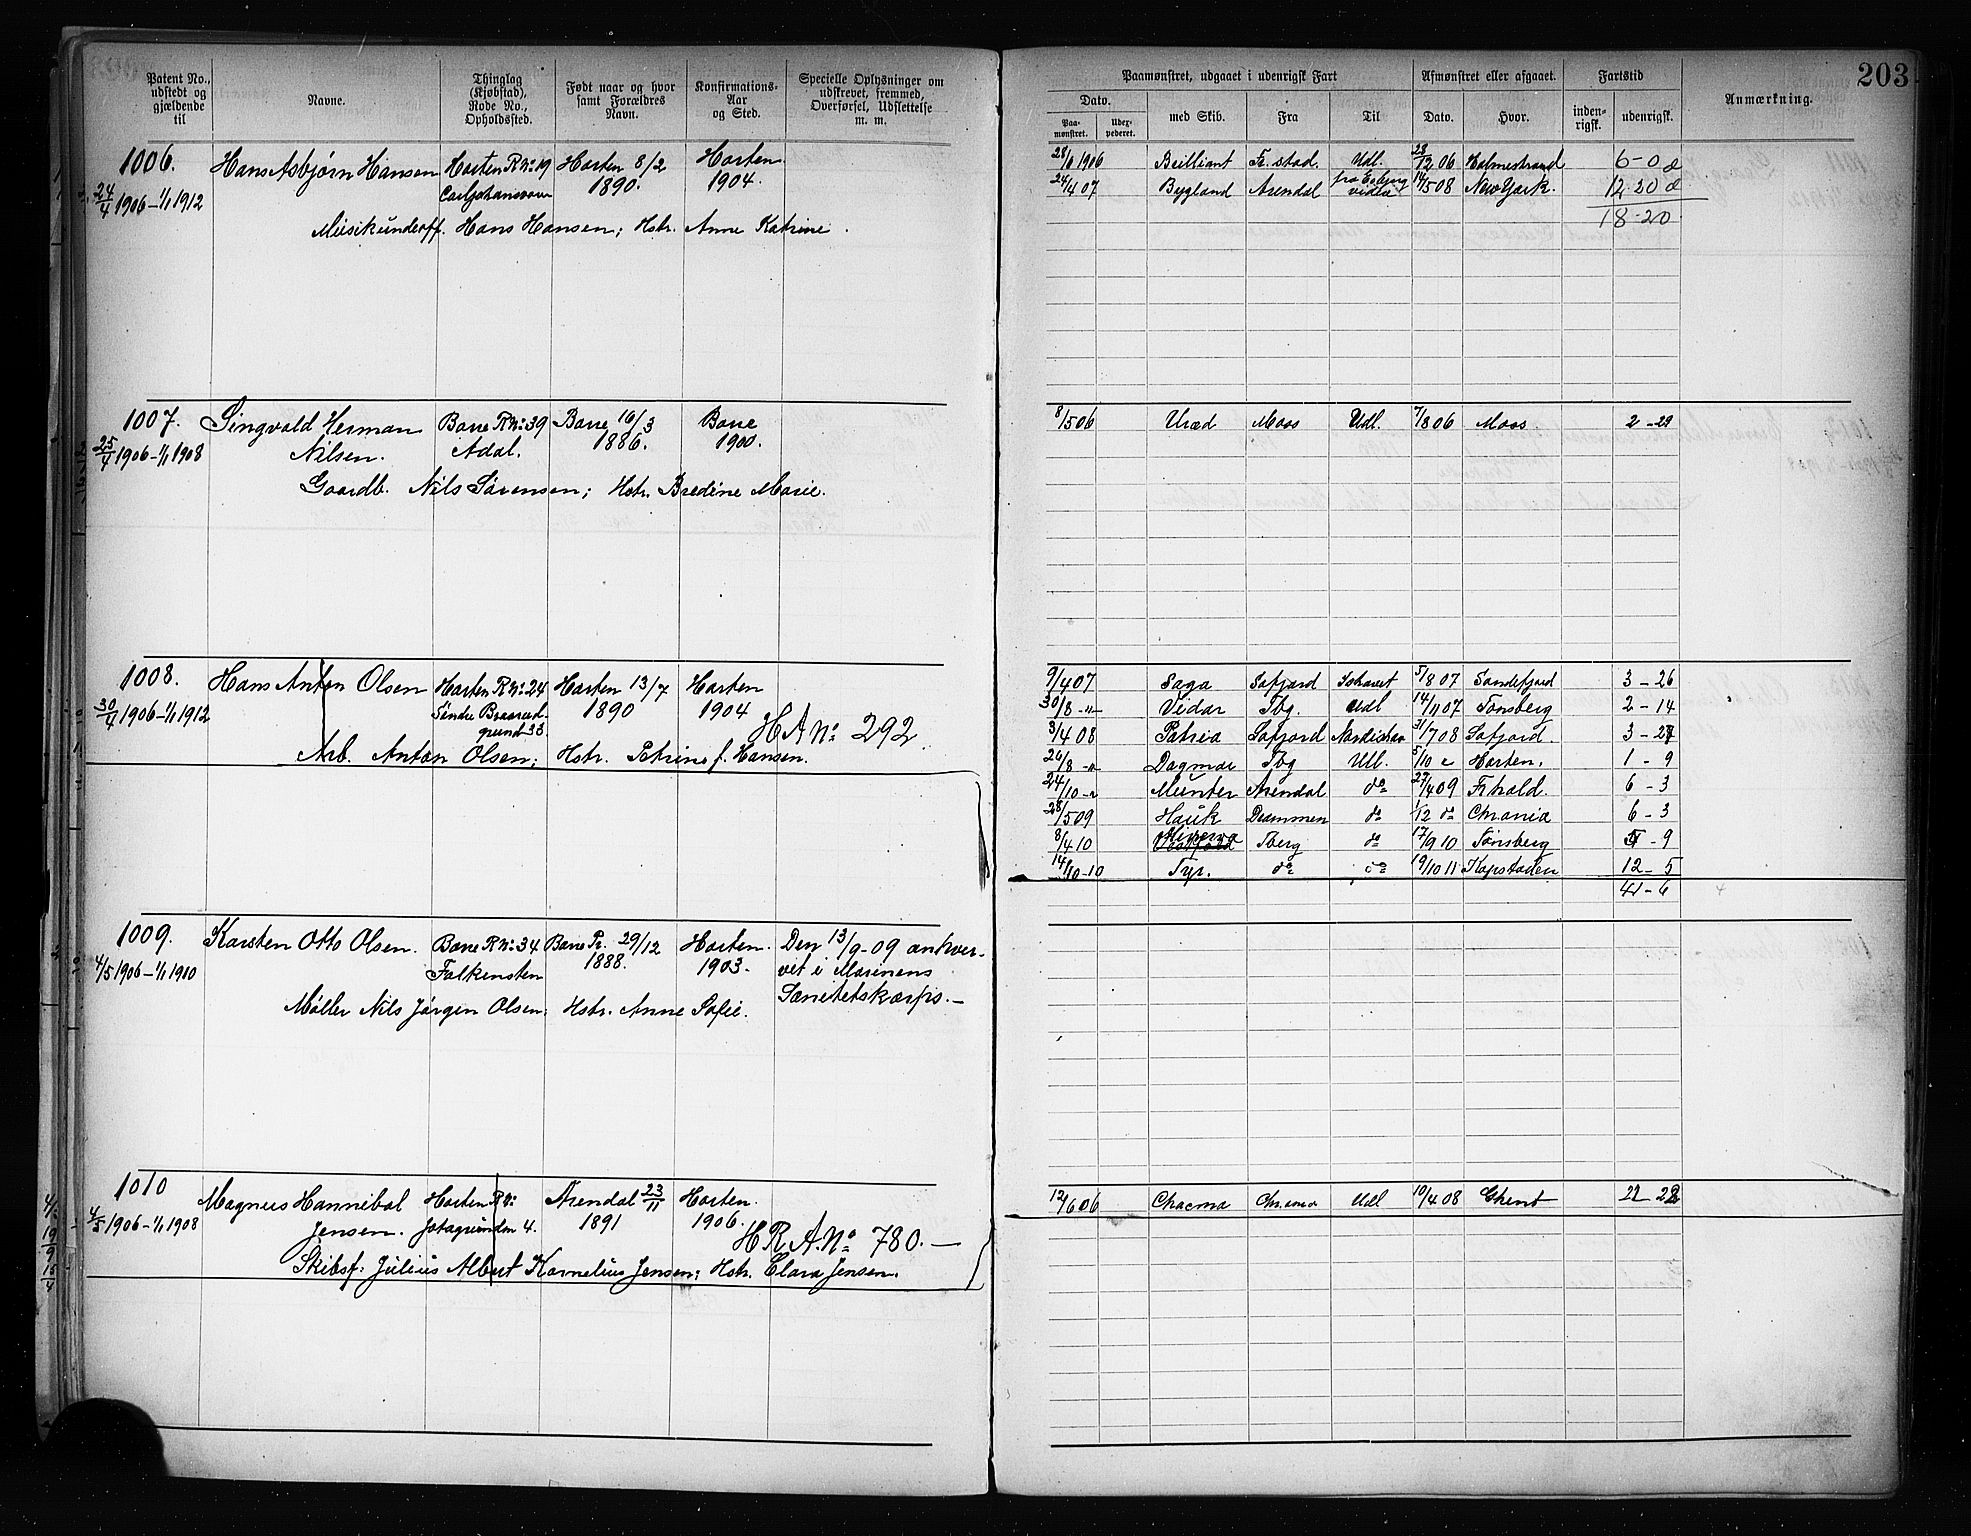 203
Patent No., udstedt og gjældende til
Navne.
Thinglag (Kjøbstad), Rode No., Opholdssted.
Født naar og hvor samt Forældres Navn.
Konfirmations-Aar og Sted.
Specielle Oplysninger om udskrevet, fremmed, Overførsel, Udslettelse m. m.
Paamønstret, udgaaet i udenrigsk Fart
Afmønstret eller afgaaet.
Fartstid
Anmærkning.
Dato.
Paa-mønstret.
med Skib.
Fra
Til
Dato.
Hvor.
inden-rigsk.
udenrigsk.
1006. Hans Asbjørn Hansen Horten R No 19 Horten 8/2 Horten
24/4 1906 - 1/1 1912 Carljohansværn 1890. 1904.
Musikunderoff. Hans Hansen; Hstr. Anne Katrine.
1906 Brilliant Fr.stad. Udl. 28/12 06 Holmestrand 6-0
24/4 07 Bygland Arendal 14/5 08 New York. 12-20
18-20
1007. Singvald Herman Borre R No 39 Borre 16/3 Borre
25/4 1906 - 1/1 1908 Nilsen. Adal. 1886. 1900.
Gaardb. Nils Sørensen; Hstr. Bredine Marie.
8/5 06 Uræd Moss Udl. 7/8 06 Moss. 2-29
1008. Hans Anton Olsen Horten R No 24 Horten 13/7 Horten
30/4 1906 - 1/1 1912 Søndre Braarud- 1890 1904
grund 33. H A No 292
Arb. Anton Olsen; Hstr. Petrine f. Hansen.
9/4 07 Saga Safjord 5/8 07 Sandefjord 3-26
30/8 -"- Vidar Tbg. Udl 14/11 07 Tønsberg 2-14
3/4 08 Patria Safjord 31/7 08 Safjord. 3-27
26/8 -"- Dagmar Tbg Udl. 5/10 Horten. 1-9
24/10 -"- Munter Arendal do 27/4 09 Frhald. 6-3
28/5 09 Hauk Drammen do 1/12 do Chrania 6-3
8/4 10 Minerva Tberg do 17/9 10 Tønsberg 5-9
14/10-10 Tyr. do do 19/10 11 Kapstaden 12-5
41-6
1009. Karsten Otto Olsen. Borre R No 34 Borre Pr. 29/12 Horten. Den 13/9-09 anhver-
4/5 1906 - 1/1 1910 Falkensten 1888. 1903. vet i Marinens
Sanitetskorps.-
Møller Nils Jørgen Olsen; Hstr. Anne Sofie.
1010 Magnus Hannibal Horten R No Arendal 23/11 Horten.
4/5 1906 - 1/1 1908 Jensen. Jotagrunden 4. 1891 1906.
H R A. No 780.-
Skibsf. Julius Albert Kornelius Jensen; Hstr. Clara Jensen.
12/6 06 Chacma Chrania Udl 10/4 08 Ghent